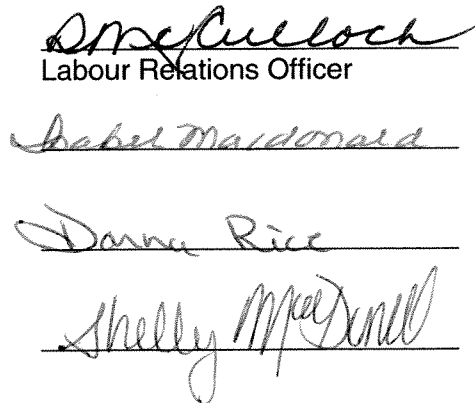 D McCulloch
Labour Relations Officer
Isabel Macdonald
Donna Rice
Shelly MacDonell